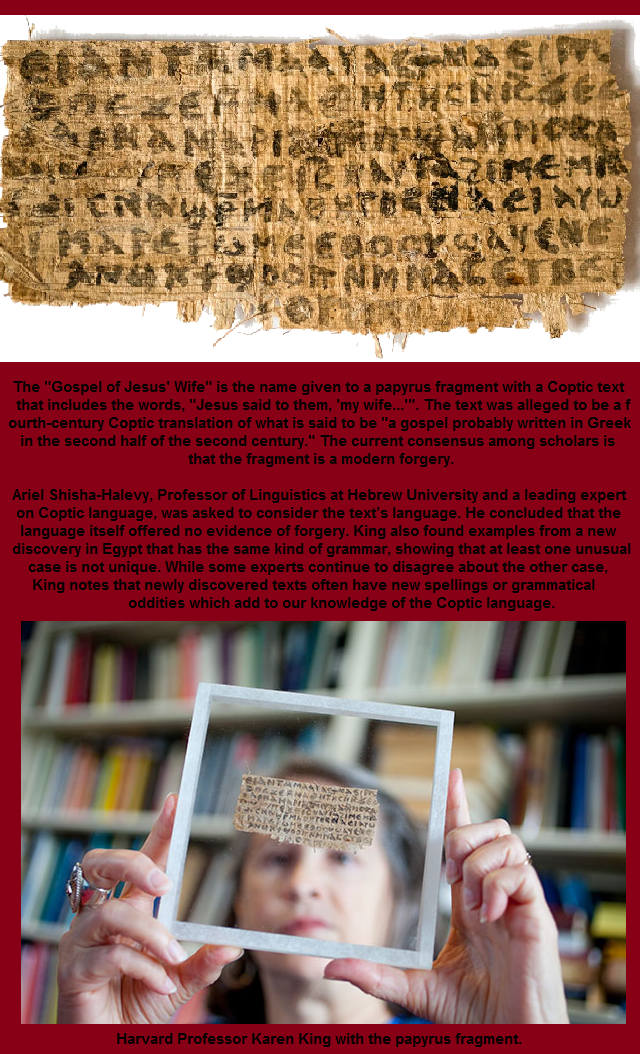 ⲉⲓ ⲁⲛ ⲧⲁⲙⲁⲁⲩ ⲁⲥϯ ⲛⲁⲉⲓ ⲡⲱ
ⲡⲉϫⲉ ⲙⲙⲁⲑⲏⲧⲏⲥ ⲛⲓ̅ⲥ̅ ϫⲉ ⲥ
ⲁⲣⲛⲁ ⲙⲁⲣⲓⲁⲙ ⲙⲡϣⲁ ⲙⲙⲟⲥ ⲁ
ⲡⲉϫⲉ ⲓ̅ⲥ̅ ⲛⲁⲩ ⲧⲁϩⲓⲙⲉ ⲙⲛ
ⲥⲛⲁϣⲣⲙⲁⲑⲏⲧⲏⲥ ⲛⲁⲉⲓ ⲁⲩⲱ
ⲙⲁⲣⲉⲣⲱⲙⲉ ⲉⲑⲟⲟⲩ ϣⲁϥⲉ ⲛⲉ
ⲁⲛⲟⲕ ϯϣⲟⲟⲡ ⲛⲙⲙⲁⲥ ⲉⲧⲃⲉ
The "Gospel of Jesus' Wife" is the name given to a papyrus fragment with a Coptic text
that includes the words, "Jesus said to them, 'my wife...'". The text was alleged to be a f
ourth-century Coptic translation of what is said to be "a gospel probably written in Greek
in the second half of the second century." The current consensus among scholars is
that the fragment is a modern forgery.
Ariel Shisha-Halevy, Professor of Linguistics at Hebrew University and a leading expert
on Coptic language, was asked to consider the text's language. He concluded that the
language itself offered no evidence of forgery. King also found examples from a new
discovery in Egypt that has the same kind of grammar, showing that at least one unusual
case is not unique. While some experts continue to disagree about the other case,
King notes that newly discovered texts often have new spellings or grammatical
oddities which add to our knowledge of the Coptic language.
Harvard Professor Karen King with the papyrus fragment.